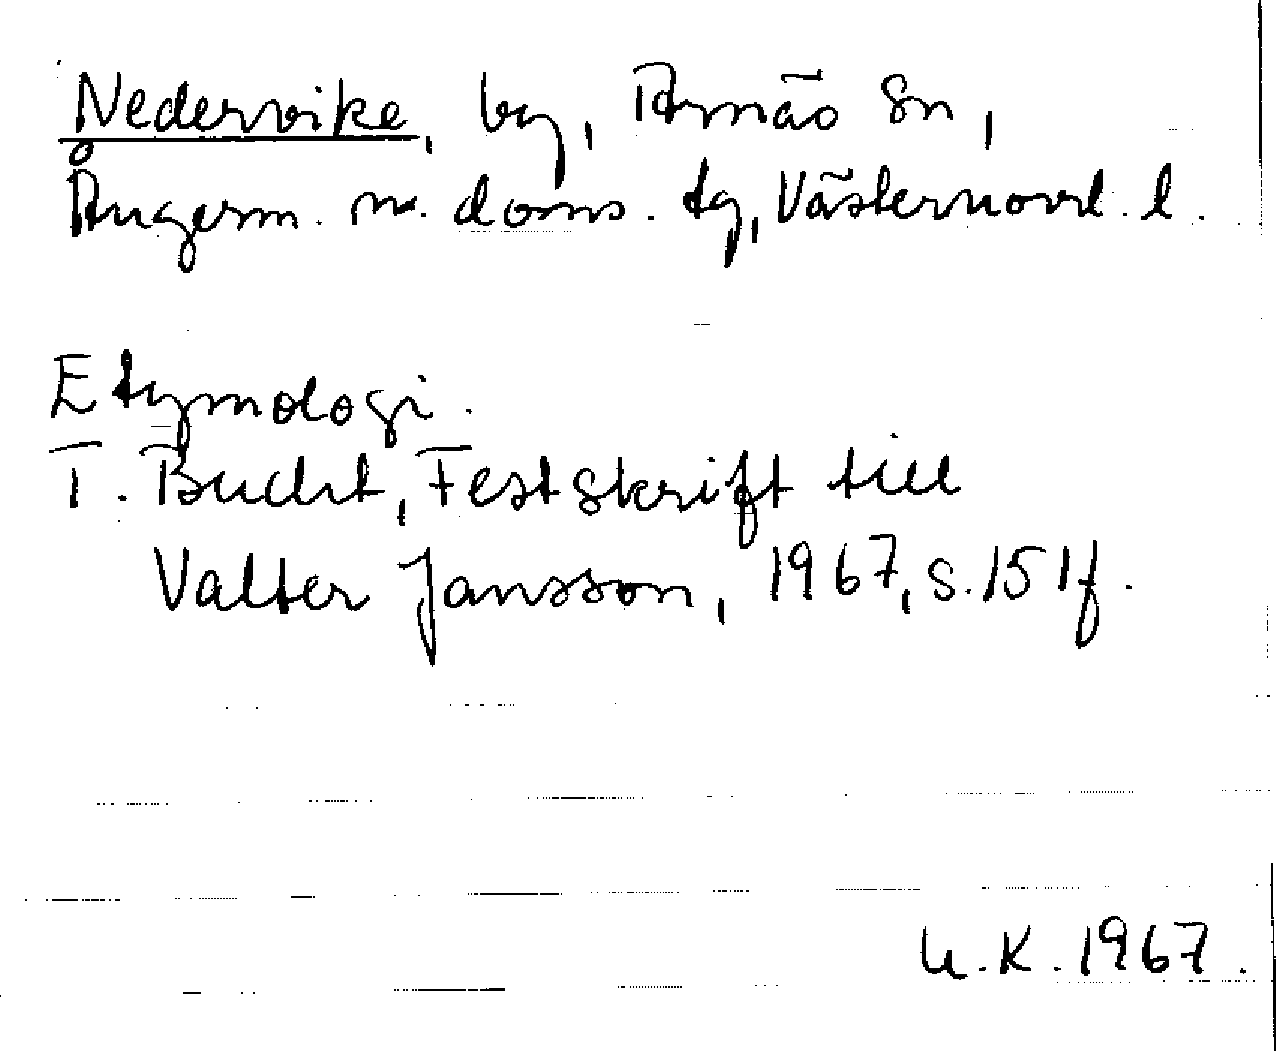 Nedervike, by, Arnäs sn,
Ångerm. m. doms. tg, Västernorrl. l.
Etymologi.
T. Bucht, Festskrift till
Valter Jansson, 1967, s. 151 f.
U.K. 1967.